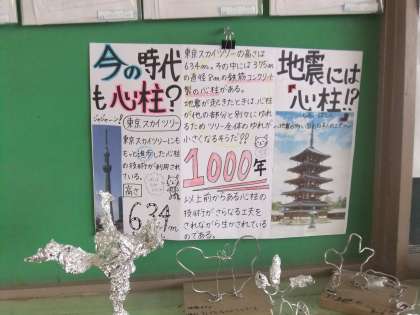 今の時代
も心柱?
東京スカイツリー
東京スカイツリーにも
もっと進歩した心柱
の技術が利用されて
いる。
高さ
634m
東京スカイツリーの高さは
634m。その中には375m
の直径8mの鉄筋コンクリート
製の心柱がある。
地震が起きたときは心柱
が他の部分と別々にゆれ
るため ツリー全体のゆれが
小さくなるそうだ??
1000年
以上前からある心柱の
技術がさらなる工夫を
されながら生かされている
のである。
地震には
「心柱」!?